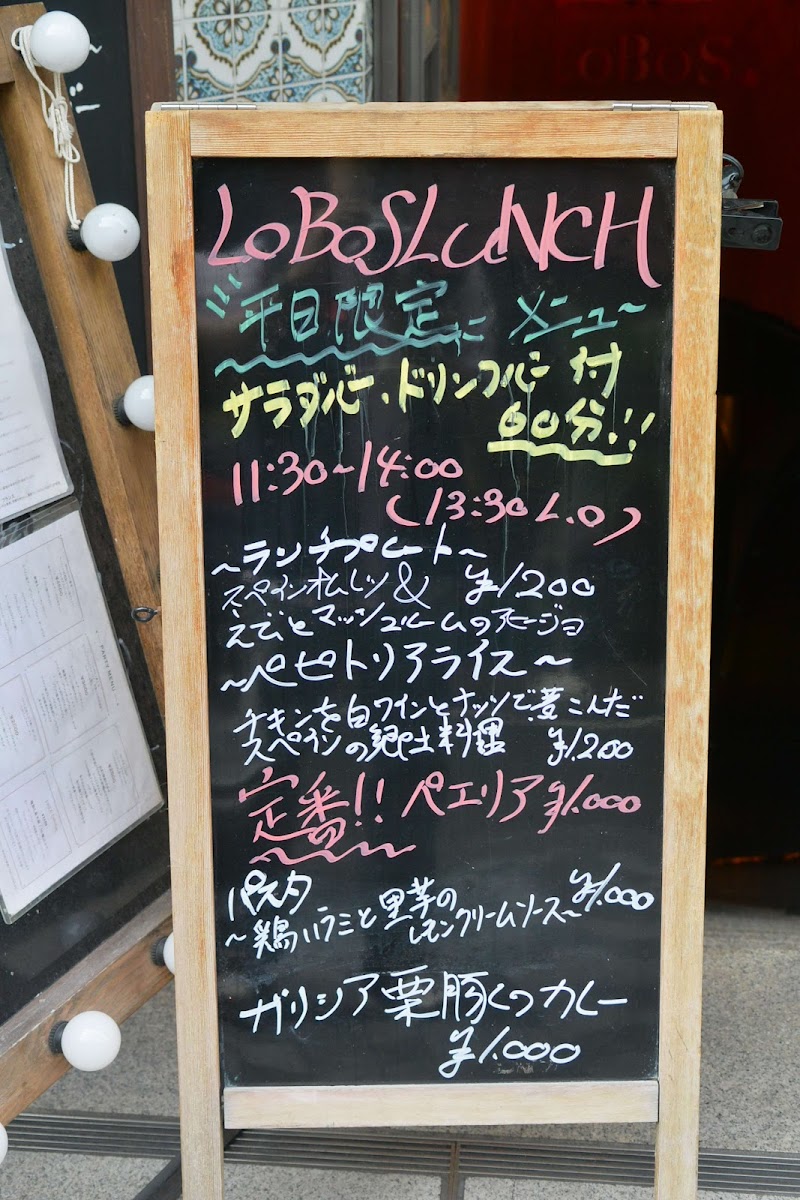 LOBOS LUNCH
平日限定 メニュー
サラダバー・ドリンクバー 付
60分!!
11:30~14:00
(13:30 L.O)
~ランチプレート~
スペインオムレツ& ¥1200
えびとマッシュルームのアヒージョ
~ペピトリアライス~
チキンを白ワインとナッツで煮こんだ
スペインの郷土料理 ¥1,200
定番!! パエリア ¥1,000
パスタ ¥1,000
~鶏ハラミと里芋の
レモンクリームソース~
ガリシア栗豚のカレー
¥1,000
PARTY MENU
LoBoS.